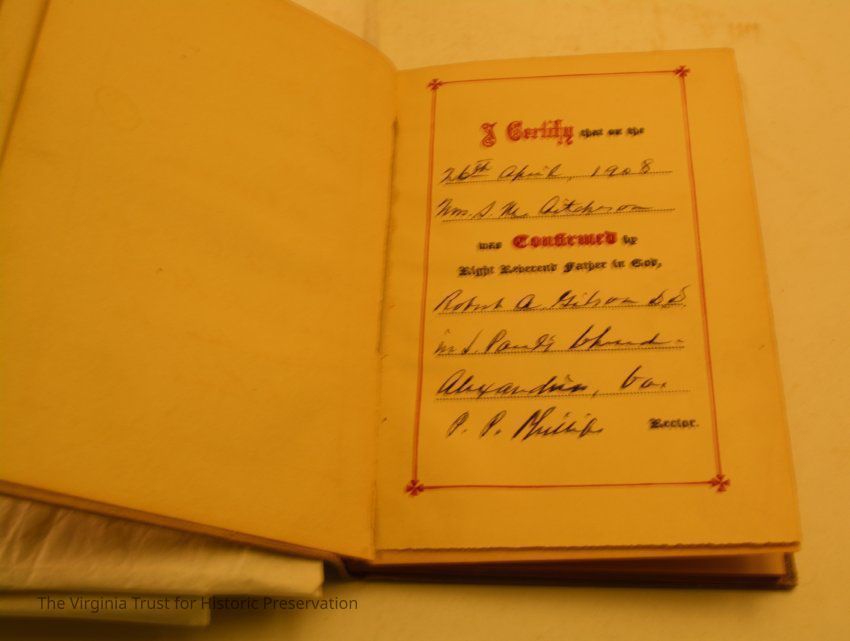 I Certify that on the
26th April, 1908
Wm. S. M. Aitcheson
was Confirmed by
Right Reverend Father in God,
Robert A Gibson D.D.
in S Paul's Church
Alexandria, Va.
P. P. Phillips
Rector.
The Virginia Trust for Historic Preservation